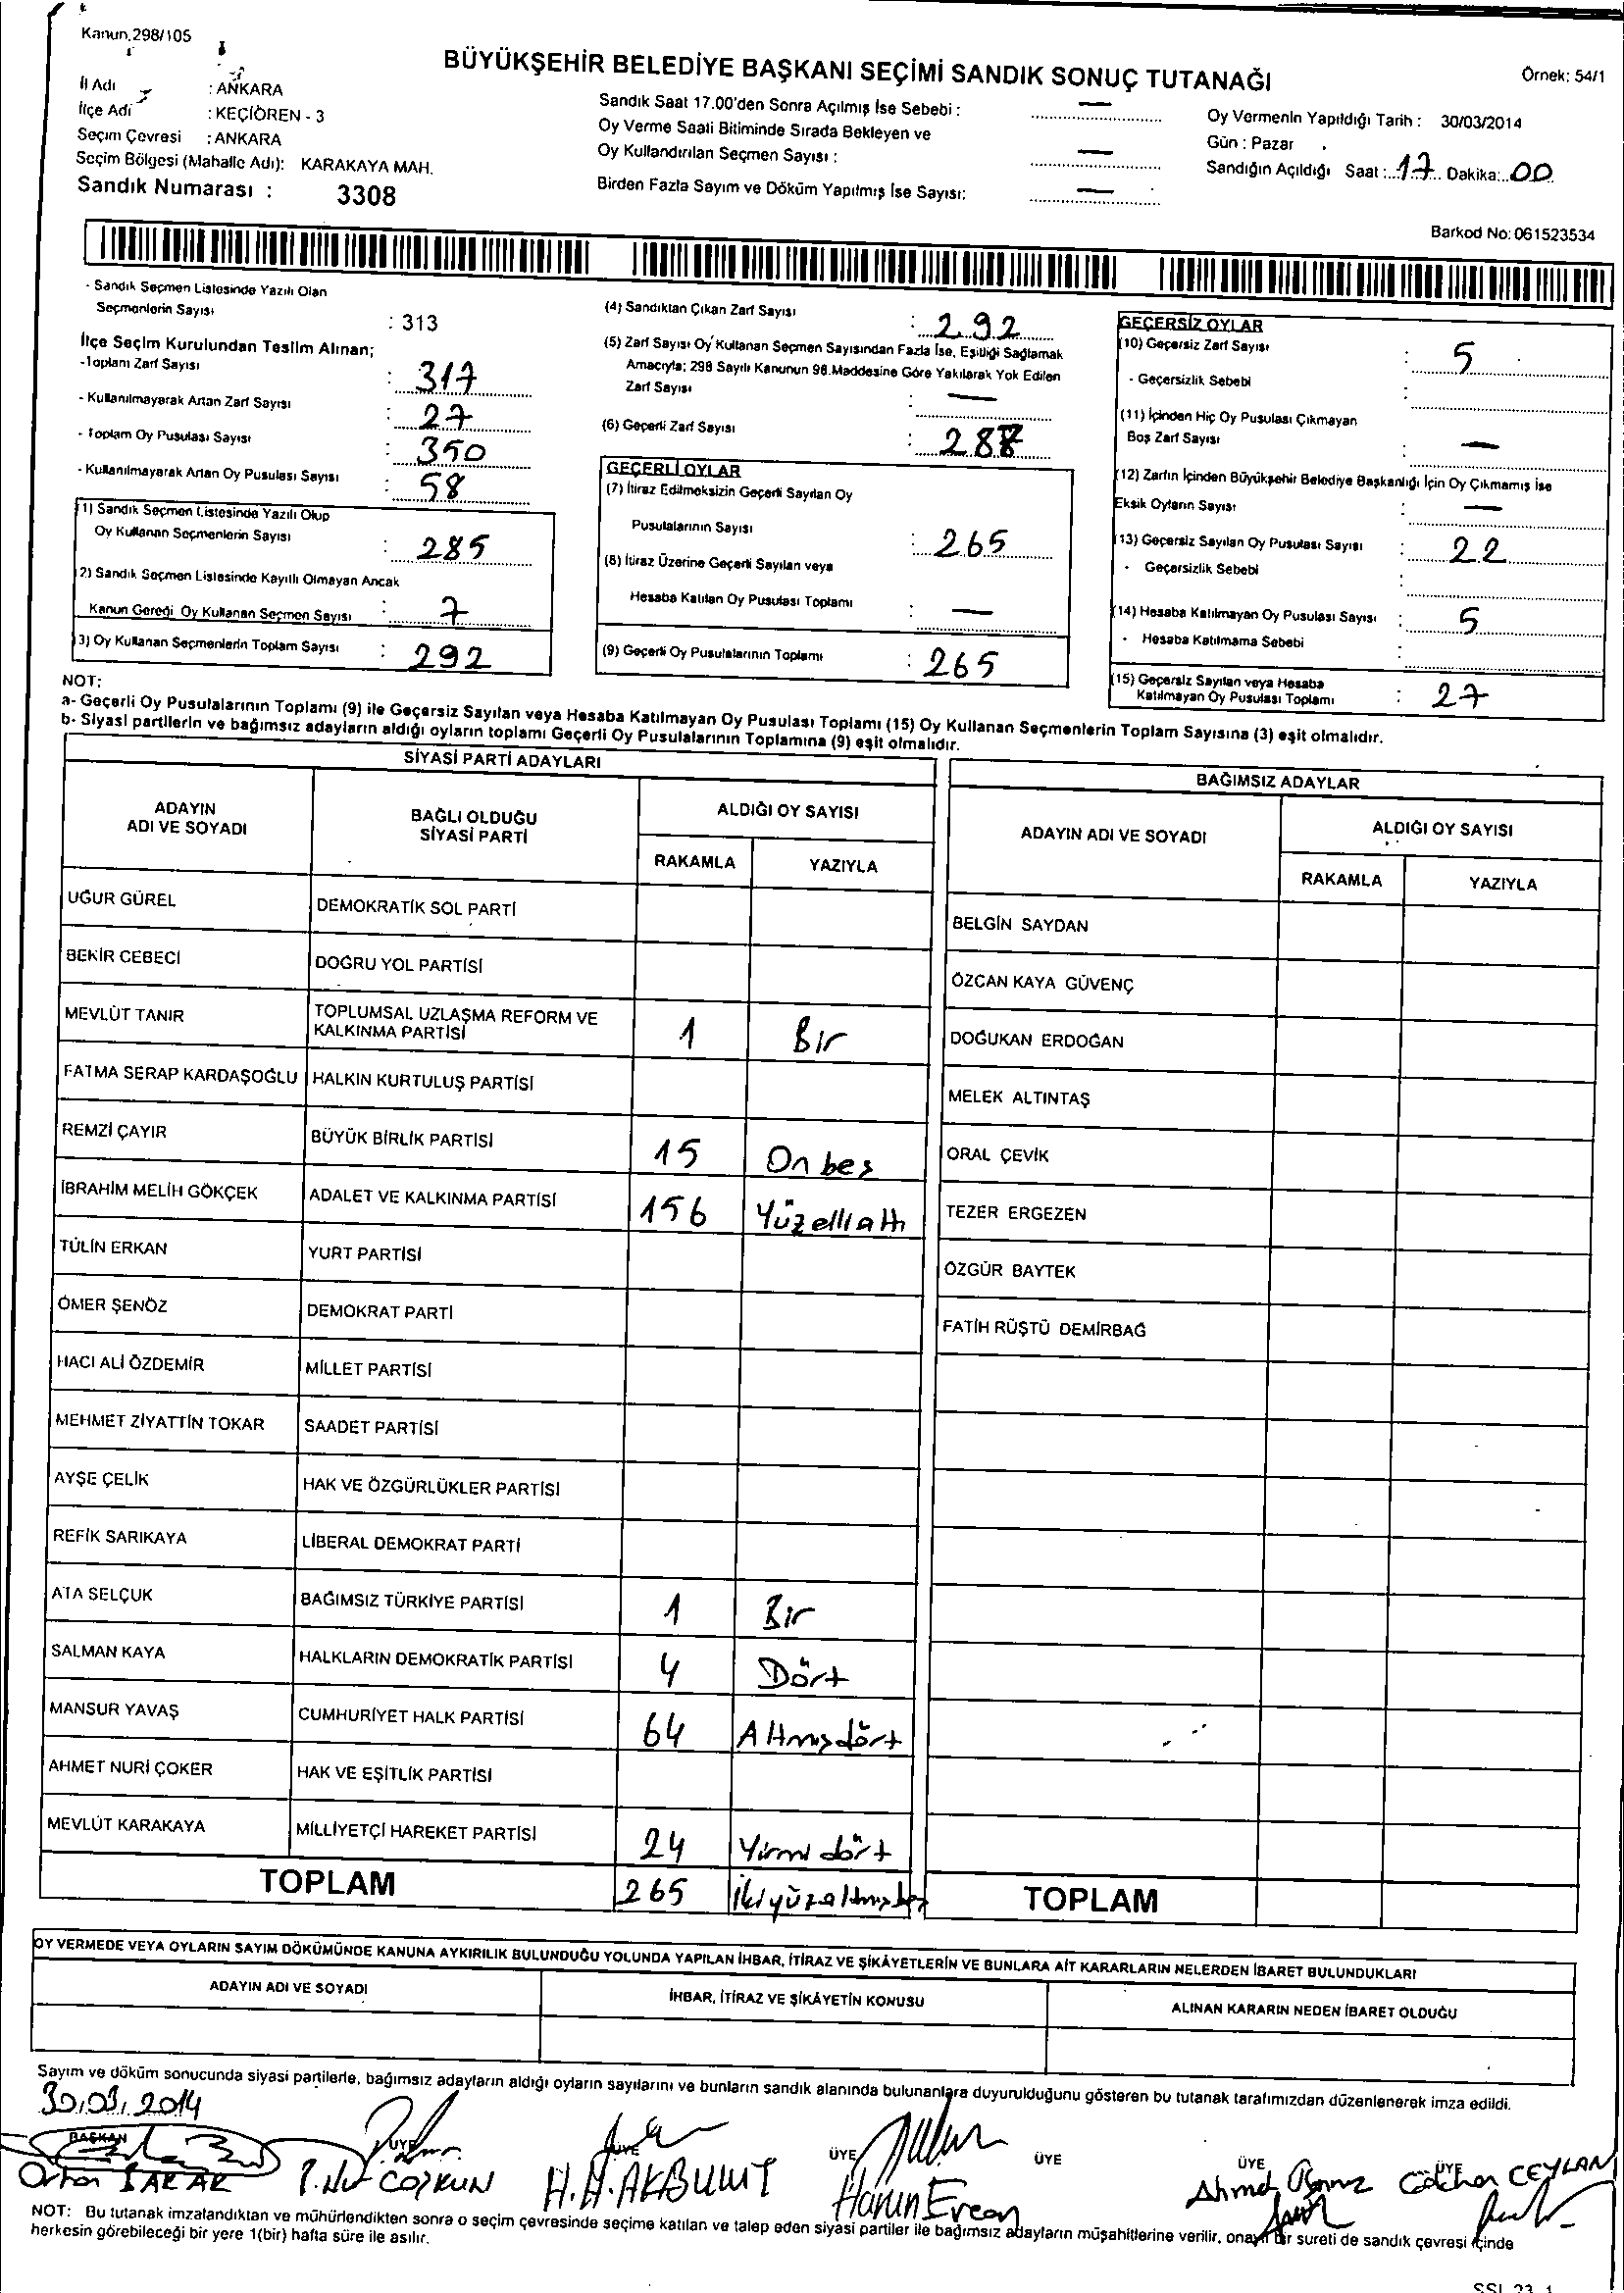 Kanun 298/105
BÜYÜKŞEHİR BELEDİYE BAŞKANI SEÇİMİ SANDIK SONUÇ TUTANAĞI
Örnek: 54/1
İl Adı : ANKARA
İlçe Adı : KEÇİÖREN - 3
Seçim Çevresi : ANKARA
Seçim Bölgesi (Mahalle Adı): KARAKAYA MAH.
Sandık Numarası : 3308
Sandık Saat 17.00'den Sonra Açılmış İse Sebebi : —
Oy Verme Saati Bitiminde Sırada Bekleyen ve
Oy Kullandırılan Seçmen Sayısı : —
Birden Fazla Sayım ve Döküm Yapılmış İse Sayısı: —
Oy Vermenin Yapıldığı Tarih : 30/03/2014
Gün : Pazar
Sandığın Açıldığı Saat : 17 Dakika: 00
Barkod No: 061523534
- Sandık Seçmen Listesinde Yazılı Olan
Seçmenlerin Sayısı : 313
İlçe Seçim Kurulundan Teslim Alınan;
-Toplam Zarf Sayısı : 317
- Kullanılmayarak Artan Zarf Sayısı : 27
- Toplam Oy Pusulası Sayısı : 350
- Kullanılmayarak Artan Oy Pusulası Sayısı : 58
(1) Sandık Seçmen Listesinde Yazılı Olup
Oy Kullanan Seçmenlerin Sayısı : 285
2) Sandık Seçmen Listesinde Kayıtlı Olmayan Ancak
Kanun Gereği Oy Kullanan Seçmen Sayısı : 7
3) Oy Kullanan Seçmenlerin Toplam Sayısı : 292
(4) Sandıktan Çıkan Zarf Sayısı : 292
(5) Zarf Sayısı Oy Kullanan Seçmen Sayısından Fazla İse, Eşitliği Sağlamak
Amacıyla; 298 Sayılı Kanunun 98.Maddesine Göre Yakılarak Yok Edilen
Zarf Sayısı : —
(6) Geçerli Zarf Sayısı : 287
GEÇERLİ OYLAR
(7) İtiraz Edilmeksizin Geçerli Sayılan Oy
Pusulalarının Sayısı : 265
(8) İtiraz Üzerine Geçerli Sayılan veya
Hesaba Katılan Oy Pusulası Toplamı : —
(9) Geçerli Oy Pusulalarının Toplamı : 265
GEÇERSİZ OYLAR
(10) Geçersiz Zarf Sayısı : 5
- Geçersizlik Sebebi :
(11) İçinden Hiç Oy Pusulası Çıkmayan
Boş Zarf Sayısı : —
(12) Zarfın İçinden Büyükşehir Belediye Başkanlığı İçin Oy Çıkmamış İse
Eksik Oyların Sayısı : —
(13) Geçersiz Sayılan Oy Pusulası Sayısı : 22
- Geçersizlik Sebebi :
(14) Hesaba Katılmayan Oy Pusulası Sayısı : 5
- Hesaba Katılmama Sebebi :
(15) Geçersiz Sayılan veya Hesaba
Katılmayan Oy Pusulası Toplamı : 27
NOT:
a- Geçerli Oy Pusulalarının Toplamı (9) ile Geçersiz Sayılan veya Hesaba Katılmayan Oy Pusulası Toplamı (15) Oy Kullanan Seçmenlerin Toplam Sayısına (3) eşit olmalıdır.
b- Siyasi partilerin ve bağımsız adayların aldığı oyların toplamı Geçerli Oy Pusulalarının Toplamına (9) eşit olmalıdır.
SİYASİ PARTİ ADAYLARI
ADAYIN ADI VE SOYADI
BAĞLI OLDUĞU SİYASİ PARTİ
ALDIĞI OY SAYISI
RAKAMLA YAZIYLA
UĞUR GÜREL DEMOKRATİK SOL PARTİ
BEKİR CEBECİ DOĞRU YOL PARTİSİ
MEVLÜT TANIR TOPLUMSAL UZLAŞMA REFORM VE KALKINMA PARTİSİ 1 Bir
FATMA SERAP KARDAŞOĞLU HALKIN KURTULUŞ PARTİSİ
REMZİ ÇAYIR BÜYÜK BİRLİK PARTİSİ 15 On beş
İBRAHİM MELİH GÖKÇEK ADALET VE KALKINMA PARTİSİ 156 Yüzellialtı
TÜLİN ERKAN YURT PARTİSİ
ÖMER ŞENÖZ DEMOKRAT PARTİ
HACI ALİ ÖZDEMİR MİLLET PARTİSİ
MEHMET ZİYATTİN TOKAR SAADET PARTİSİ
AYŞE ÇELİK HAK VE ÖZGÜRLÜKLER PARTİSİ
REFİK SARIKAYA LİBERAL DEMOKRAT PARTİ
ATA SELÇUK BAĞIMSIZ TÜRKİYE PARTİSİ 1 Bir
SALMAN KAYA HALKLARIN DEMOKRATİK PARTİSİ 4 Dört
MANSUR YAVAŞ CUMHURİYET HALK PARTİSİ 64 Altmışdört
AHMET NURİ ÇOKER HAK VE EŞİTLİK PARTİSİ
MEVLÜT KARAKAYA MİLLİYETÇİ HAREKET PARTİSİ 24 Yirmi dört
TOPLAM 265 İkiyüzaltmışbeş
BAĞIMSIZ ADAYLAR
ADAYIN ADI VE SOYADI
ALDIĞI OY SAYISI
RAKAMLA YAZIYLA
BELGİN SAYDAN
ÖZCAN KAYA GÜVENÇ
DOĞUKAN ERDOĞAN
MELEK ALTINTAŞ
ORAL ÇEVİK
TEZER ERGEZEN
ÖZGÜR BAYTEK
FATİH RÜŞTÜ DEMİRBAĞ
TOPLAM
OY VERMEDE VEYA OYLARIN SAYIM DÖKÜMÜNDE KANUNA AYKIRILIK BULUNDUĞU YOLUNDA YAPILAN İHBAR, İTİRAZ VE ŞİKÂYETLERİN VE BUNLARA AİT KARARLARIN NELERDEN İBARET BULUNDUKLARI
ADAYIN ADI VE SOYADI
İHBAR, İTİRAZ VE ŞİKÂYETİN KONUSU
ALINAN KARARIN NEDEN İBARET OLDUĞU
Sayım ve döküm sonucunda siyasi partilerle, bağımsız adayların aldığı oyların sayılarını ve bunların sandık alanında bulunanlara duyurulduğunu gösteren bu tutanak tarafımızdan düzenlenerek imza edildi.
30.03.2014
BAŞKAN ÜYE ÜYE ÜYE ÜYE ÜYE ÜYE
COŞKUN H.H.AKBULUT Harun Ercan Ahmet Gökhan CEYLAN
NOT: Bu tutanak imzalandıktan ve mühürlendikten sonra o seçim çevresinde seçime katılan ve talep eden siyasi partiler ile bağımsız adayların müşahitlerine verilir, onaylı bir sureti de sandık çevresi içinde
herkesin görebileceği bir yere 1(bir) hafta süre ile asılır.